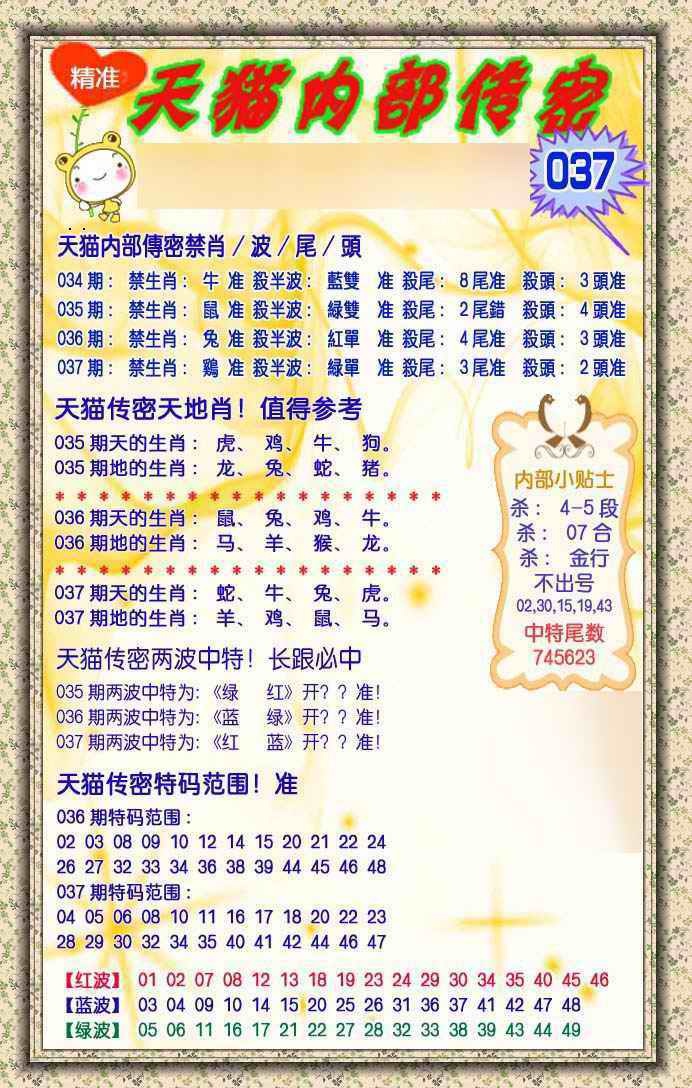 精准
天猫内部传密
037
天猫内部傳密禁肖／波／尾／頭
034期： 禁生肖： 牛 准 殺半波： 藍雙 准 殺尾： 8尾准 殺頭： 3頭准
035期： 禁生肖： 鼠 准 殺半波： 綠雙 准 殺尾： 2尾錯 殺頭： 4頭准
036期： 禁生肖： 兔 准 殺半波： 紅單 准 殺尾： 4尾准 殺頭： 3頭准
037期： 禁生肖： 鷄 准 殺半波： 綠單 准 殺尾： 3尾准 殺頭： 2頭准
天猫传密天地肖！值得参考
035期天的生肖： 虎、 鸡、 牛、 狗。
035期地的生肖： 龙、 兔、 蛇、 猪。
* * * * * * * * * * * * * * * * * *
036期天的生肖： 鼠、 兔、 鸡、 牛。
036期地的生肖： 马、 羊、 猴、 龙。
* * * * * * * * * * * * * * * * * *
037期天的生肖： 蛇、 牛、 兔、 虎。
037期地的生肖： 羊、 鸡、 鼠、 马。
内部小贴士
杀： 4-5段
杀： 07合
杀： 金行
不出号
02,30,15,19,43
中特尾数
745623
天猫传密两波中特！长跟必中
035期两波中特为:《绿 红》开？？准！
036期两波中特为:《蓝 绿》开？？准！
037期两波中特为:《红 蓝》开？？准！
天猫传密特码范围！准
036期特码范围：
02 03 08 09 10 12 14 15 20 21 22 24
26 27 32 33 34 36 38 39 44 45 46 48
037期特码范围：
04 05 06 08 10 11 16 17 18 20 22 23
28 29 30 32 34 35 40 41 42 44 46 47
【红波】 01 02 07 08 12 13 18 19 23 24 29 30 34 35 40 45 46
【蓝波】 03 04 09 10 14 15 20 25 26 31 36 37 41 42 47 48
【绿波】 05 06 11 16 17 21 22 27 28 32 33 38 39 43 44 49